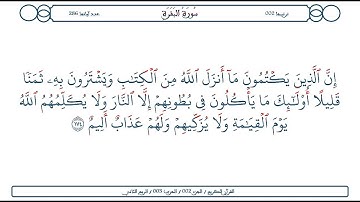 ترتيبها 002 سُورَةُ البَقَرَةِ عدد آياتها 286
إِنَّ ٱلَّذِينَ يَكْتُمُونَ مَآ أَنزَلَ ٱللَّهُ مِنَ ٱلْكِتَٰبِ وَيَشْتَرُونَ بِهِۦ ثَمَنًا
قَلِيلًا أُو۟لَٰٓئِكَ مَا يَأْكُلُونَ فِى بُطُونِهِمْ إِلَّا ٱلنَّارَ وَلَا يُكَلِّمُهُمُ ٱللَّهُ
يَوْمَ ٱلْقِيَٰمَةِ وَلَا يُزَكِّيهِمْ وَلَهُمْ عَذَابٌ أَلِيمٌ ١٧٤
القرآن الكريم / الجزء 002 / الحزب 003 / الربع الثاني